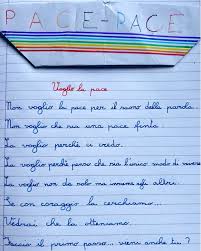 PACE-PACE
Voglio la pace
Non voglio la pace per il suono della parola.
Non voglio che sia una pace finta.
La voglio perché ci credo.
La voglio perché penso che sia l'unico modo di vivere
La voglio non da solo ma insieme agli altri.
Se con coraggio la cerchiamo...
Vedrai che la otteniamo.
Faccio il primo passo... vieni anche tu?